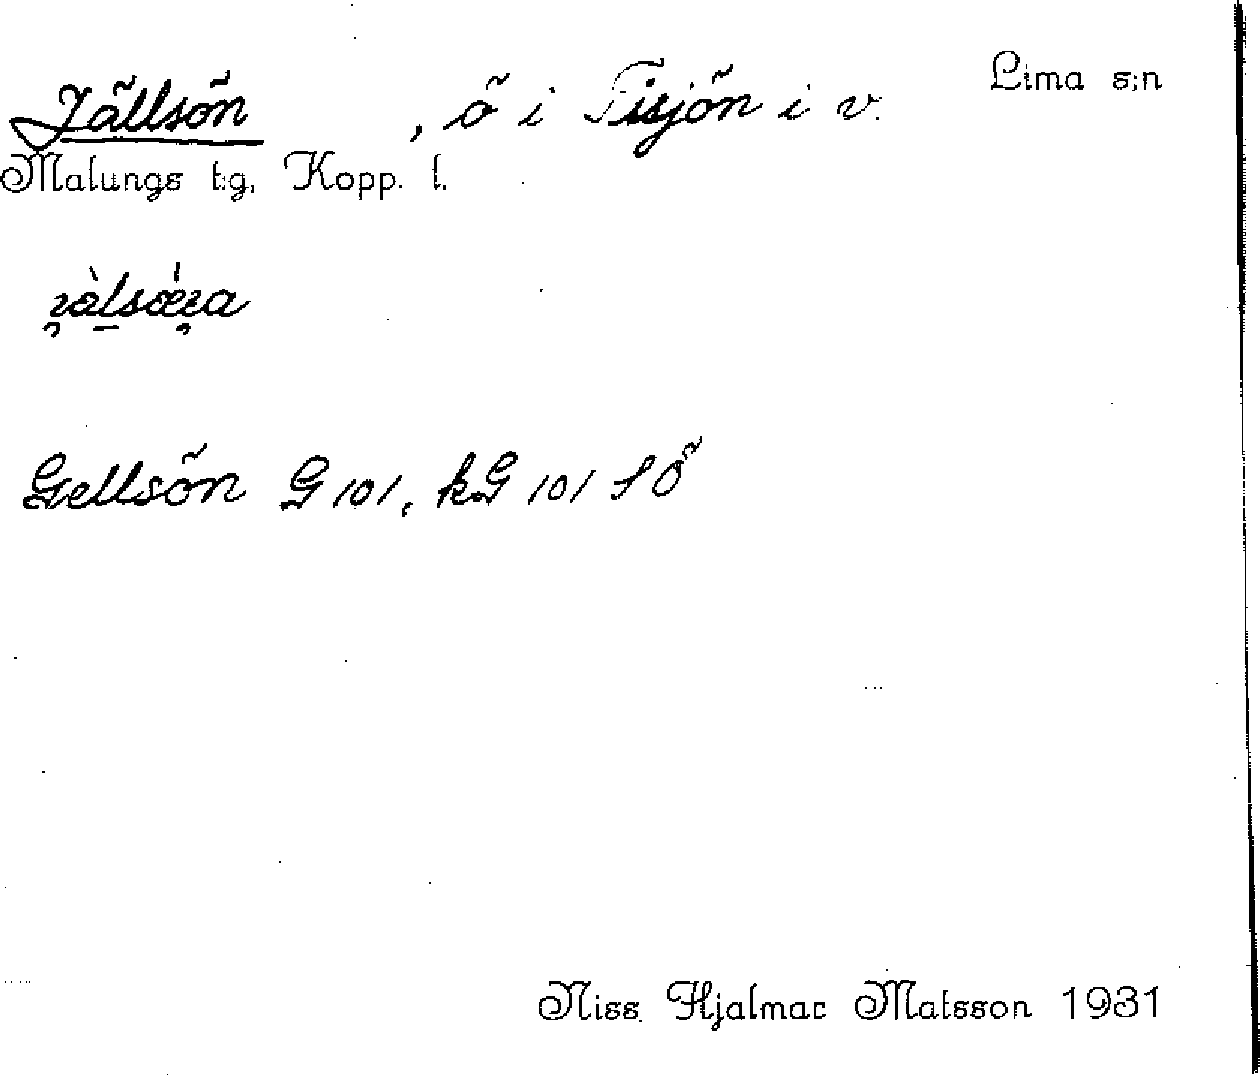 Jällsön, ö i Tisjön i v. Lima s:n
Malungs t:g, Kopp. l.
Gellsön G 101, kG 101 SÖ
Niss Hjalmar Matsson 1931